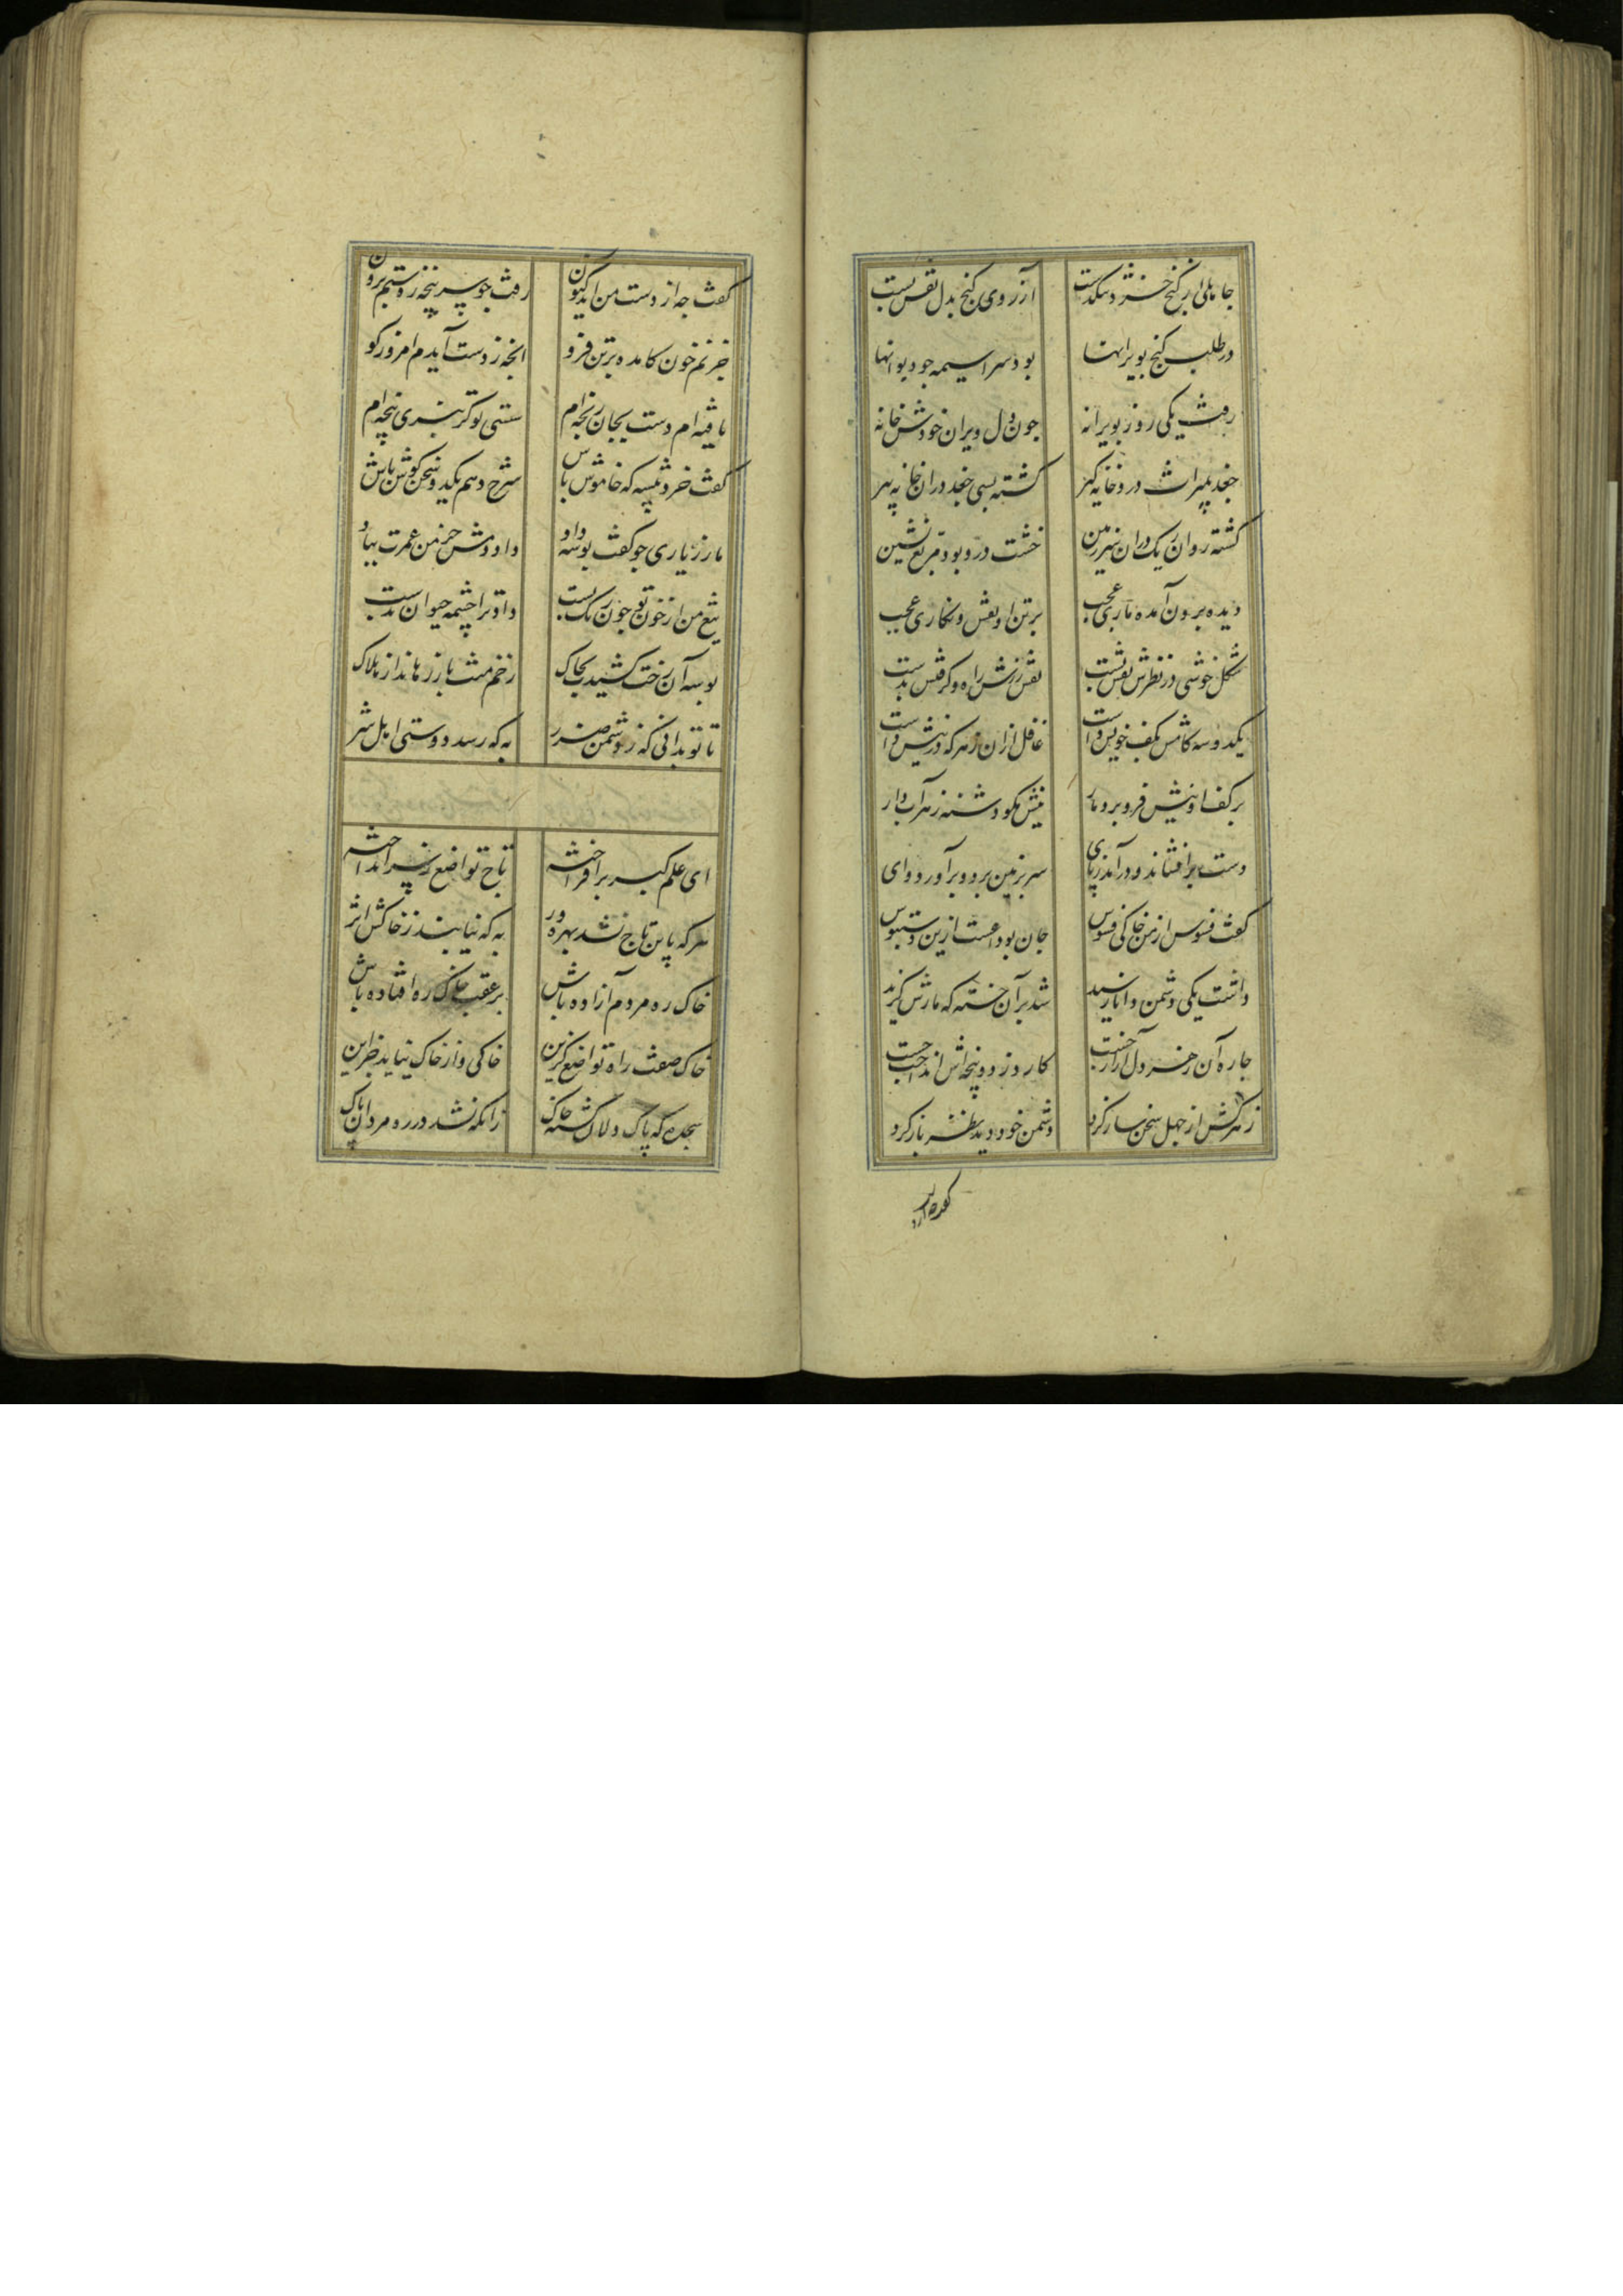 جاهلی از کنج خرد تنکدست آرزوی کنج بدل نقش بست
در طلب کنج بویرانها بود سراسیمه جو دیوانها
رفت یکی روز بویرانه جون دل ویران خودش خانه
جغد بمیراث درو خانه گیر گشته بسی جغد در ان خانه پیر
گشته روان ریک در ان زیر زمین خشت درو بود مربع نشین
دیده برون آمده ماری عجب بر تن او نقش و نگاری عجب
شکل خوشی در نظرش نقش بست نقش زدش راه و گرفتش بدست
یکدو سه گامش بکف خویش داشت غافل ازان زهر که در نیش داشت
بر کف او نیش فرو برد مار نیش مگو دشنه زهراب دار
دست برافشاند و درآمد ز پای سر بزمین برد و برآورد وای
گفت فسوس از من خاکی فسوس جان بوداعست ازین دستبوس
داشت یکی دشمن و انجا رسید شد بر آن خسته که مارش گزید
جاره آن رنج و دل آزار جست کارد زد و پنجه‌اش انداخت جست
زهرکش از جهل سخن ساز کرد دشمن خود دید نظر باز کرد
گفت جه از دست من اید کنون
گفت جه از دست من اید کنون رفت جو سر پنجه ز دستم برون
خرم خون کامده بر تن فرو انجه ز دست آیدم امروز کو
تافته‌ام دست بجان رنجه‌ام سستی تو گر ببری پنجه‌ام
گفت خردپیشه که خاموش باش شرح دهم یکدو سخن گوش باش
مار ز یاری جو کفت بوسه داد داد دمش خرمن عمرت بباد
تیغ من از خون تو جون رنک بست داد ترا جشمه حیوان بدست
بوسه آن رخت کشیدت بخاک زخم منت باز رهاند از هلاک
تا تو بدانی که ز دشمن ضرر به که رسد دوستی اهل شر
ای علم کبر برافراخته تاج تواضع ز سر انداخته
هر که باین تاج نشد بهره ور به که نیابند ز خاکش اثر
خاک ره مردم آزاده باش بر عقب خاک ره افتاده باش
خاک صفت راه تواضع گزین خاکی و از خاک نیاید جز این
سجده که پاک دلان گشته خاک زانکه نشد در ره مردان پاک